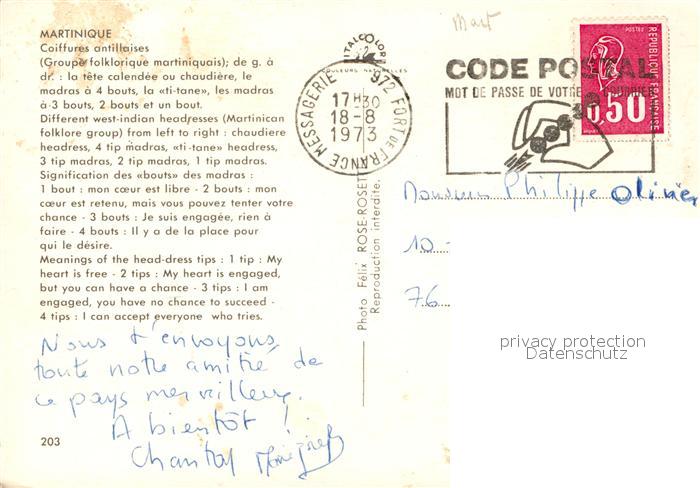 MARTINIQUE
Coiffures antillaises
(Groupe folklorique martiniquais); de g. à
dr. : la tête calendée ou chaudière, le
madras à 4 bouts, la «ti-tane», les madras
à 3 bouts, 2 bouts et un bout.
Different west-indian headresses (Martinican
folklore group) from left to right : chaudiere
headress, 4 tip madras, «ti-tane» headress,
3 tip madras, 2 tip madras, 1 tip madras.
Signification des «bouts» des madras :
1 bout : mon cœur est libre - 2 bouts : mon
cœur est retenu, mais vous pouvez tenter votre
chance - 3 bouts : Je suis engagée, rien à
faire - 4 bouts : Il y a de la place pour
qui le désire.
Meanings of the head-dress tips : 1 tip : My
heart is free - 2 tips : My heart is engaged,
but you can have a chance - 3 tips : I am
engaged, you have no chance to succeed -
4 tips : I can accept everyone who tries.
Nous t'envoyons
toute notre amitié de
ce pays merveilleux.
A bientôt !
Chantal
203
ITALCOLOR
COULEURS NATURELLES
972 FORT DE FRANCE MESSAGERIE
17H30
18-8
1973
Photo Félix ROSE-ROSETTE
Reproduction interdite.
Mart
CODE POSTAL
MOT DE PASSE DE VOTRE COURRIER
POSTES
REPUBLIQUE FRANÇAISE
0,50
Monsieur Philippe Olivier
10 -
76
privacy protection
Datenschutz